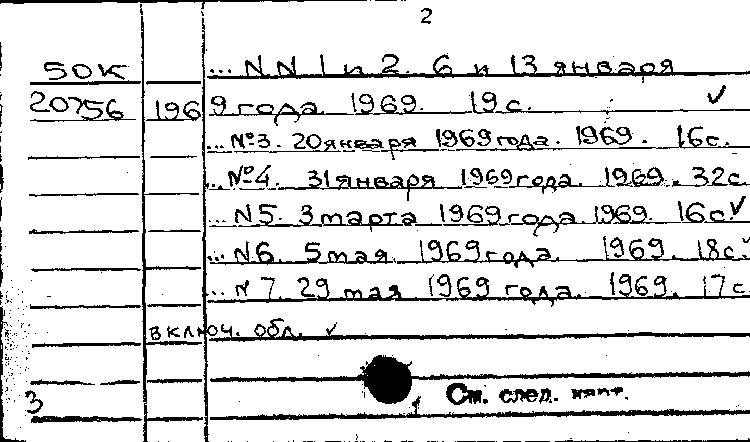 2
50К ... N N 1 и 2. 6 и 13 января
20756 1969 года. 1969. 19 с. ✓
... №3. 20 января 1969 года. 1969. 16 с.
... №4. 31 января 1969 года. 1969. 32 с.
... N5. 3 марта 1969 года. 1969. 16 с. ✓
... N6. 5 мая 1969 года. 1969. 18 с. ✓
... N 7. 29 мая 1969 года. 1969. 17 с
включ. обл. ✓
3 См. след. карт.